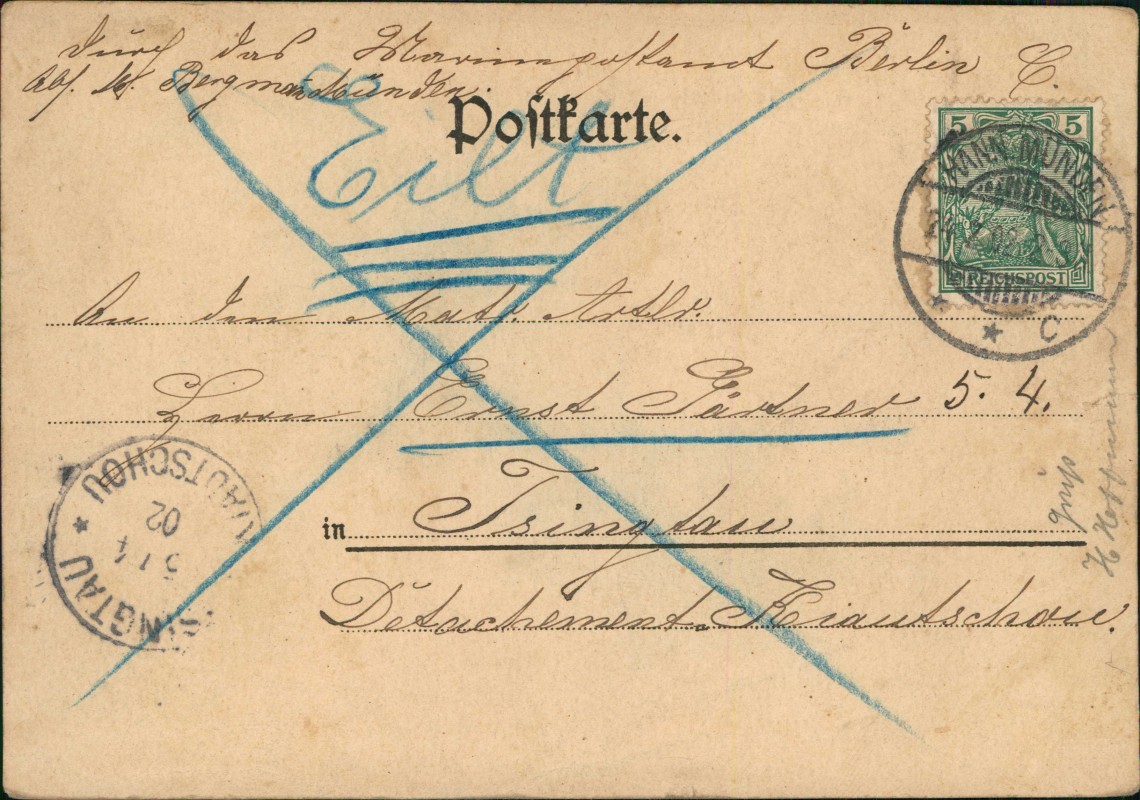 durch das Marinepostamt Berlin C.
Abs. M. Bergmann Münden.
Postkarte.
Eilt
5 5
REICHSPOST
HANN. MÜNDEN
* * C
An den Matr. Artlr.
Herrn Ernst Gärtner 5. 4.
in Tsingtau
Detachement Kiautschou.
TSINGTAU * KIAUTSCHOU
5/4
02
Gruß
H Hoffmann